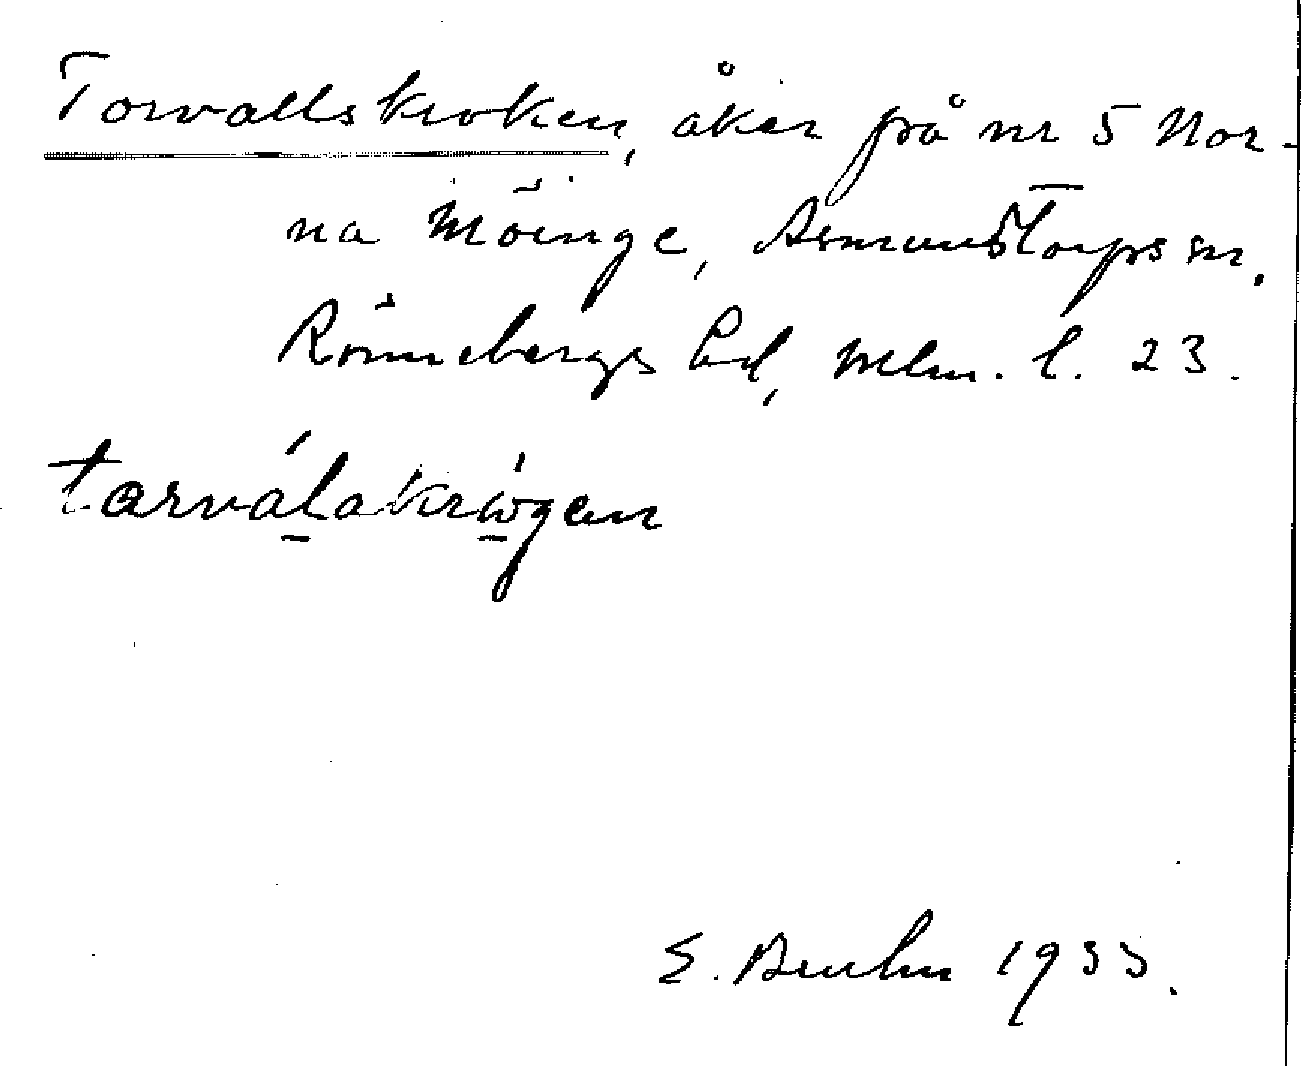 Torvallskroken, åker på nr 5 Nor-
na Möinge, Asmundtorps sn,
Rönnebergs hd, Mlm. l. 23.
tarválakrògen
E. Bruhn 1933.